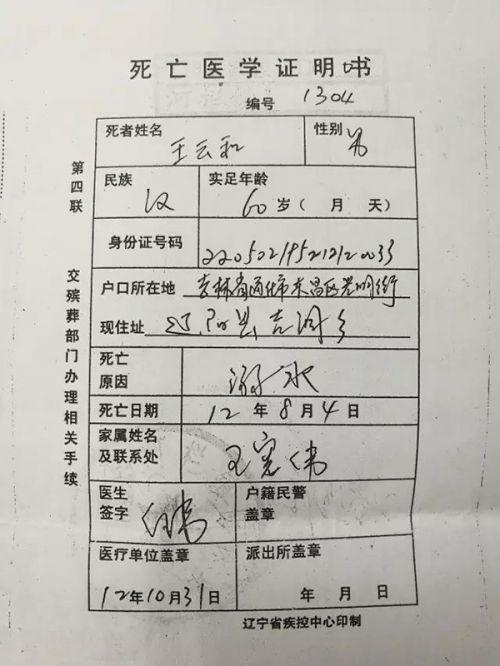 死亡医学证明书
编号 1304
死者姓名 王云和 性别 男
民族 汉 实足年龄 60岁（ 月 天）
身份证号码 220502195212120033
户口所在地 吉林省通化市东昌区光明街
现住址 辽阳县吉洞乡
死亡原因 溺水
死亡日期 12年8月4日
家属姓名及联系处 王宪伟
医生签字 户籍民警盖章
医疗单位盖章 派出所盖章
12年10月31日 年 月 日
辽宁省疾控中心印制
第四联 交殡葬部门办理相关手续